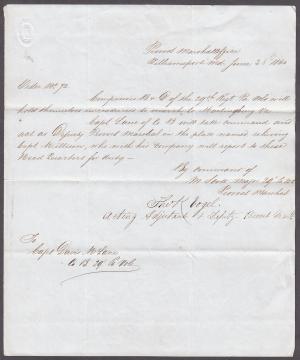 Provost Marshals Office
Williamsport Md June 21st 186
Order No 92
Companies B & D of the 29th Regt Pa Vols will
hold themselves in readiness to march to
Capt Lane of Co B will take command and
act as Deputy Provost Marshal in the place named relieving
Capt William, who with his company will report to these
Head Quarters for duty
By command of
M Scott Major 29th
Provost Marshal
Vogel
Acting Adjutant & Deputy Provost
To
Capt Davis M Lane
Co B 29 Pa Vols